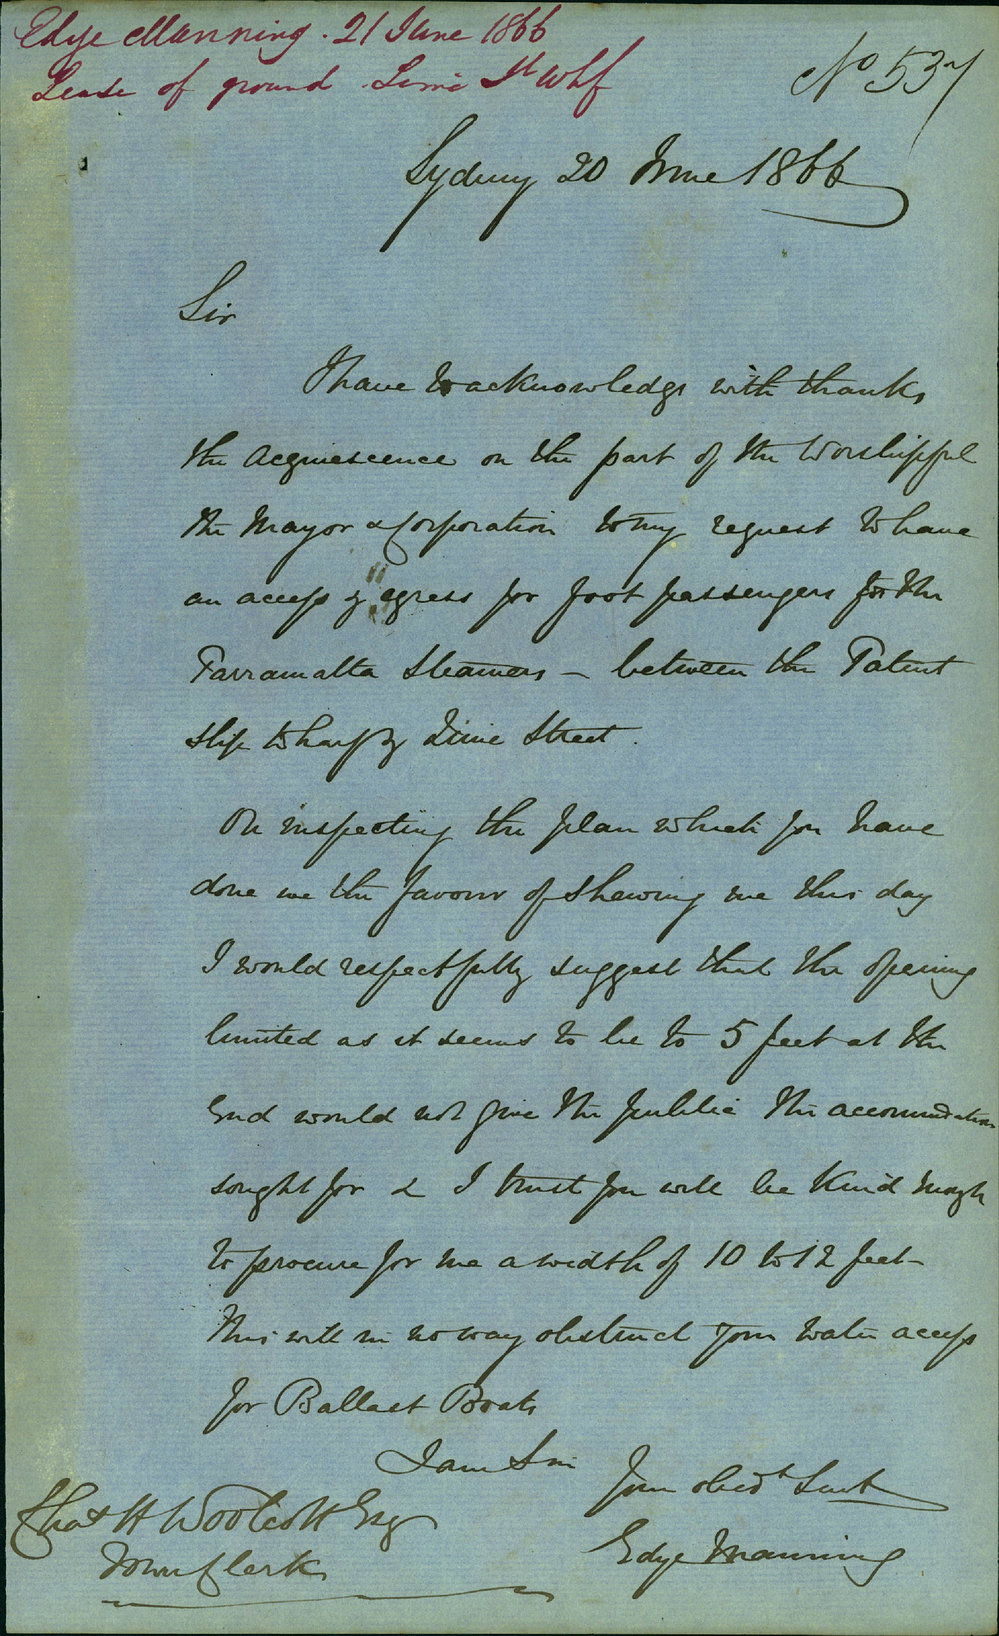 Edye Manning. 21 June 1866
Lease of ground Lime St Whf
No 537
Sydney 20 June 1866
Sir
I have to acknowledge with thanks
the acquiescence on the part of the Worshipful
the Mayor & Corporation to my request to have
an access & egress for foot passengers for the
Parramatta Steamers – between the Patent
slip Wharf & Lime Street.
On inspecting the plan which you have
done me the favour of shewing me this day
I would respectfully suggest that the opening
limited as it seems to be to 5 feet at the
End would not give the public the accommodation
sought for & I trust you will be kind enough
to procure for me a width of 10 to 12 feet –
this will in no way obstruct your water access
for Ballast Boats
I am Sir
Your obedt Servt
Edye Manning
Chas H Woolcott Esq
Town Clerk